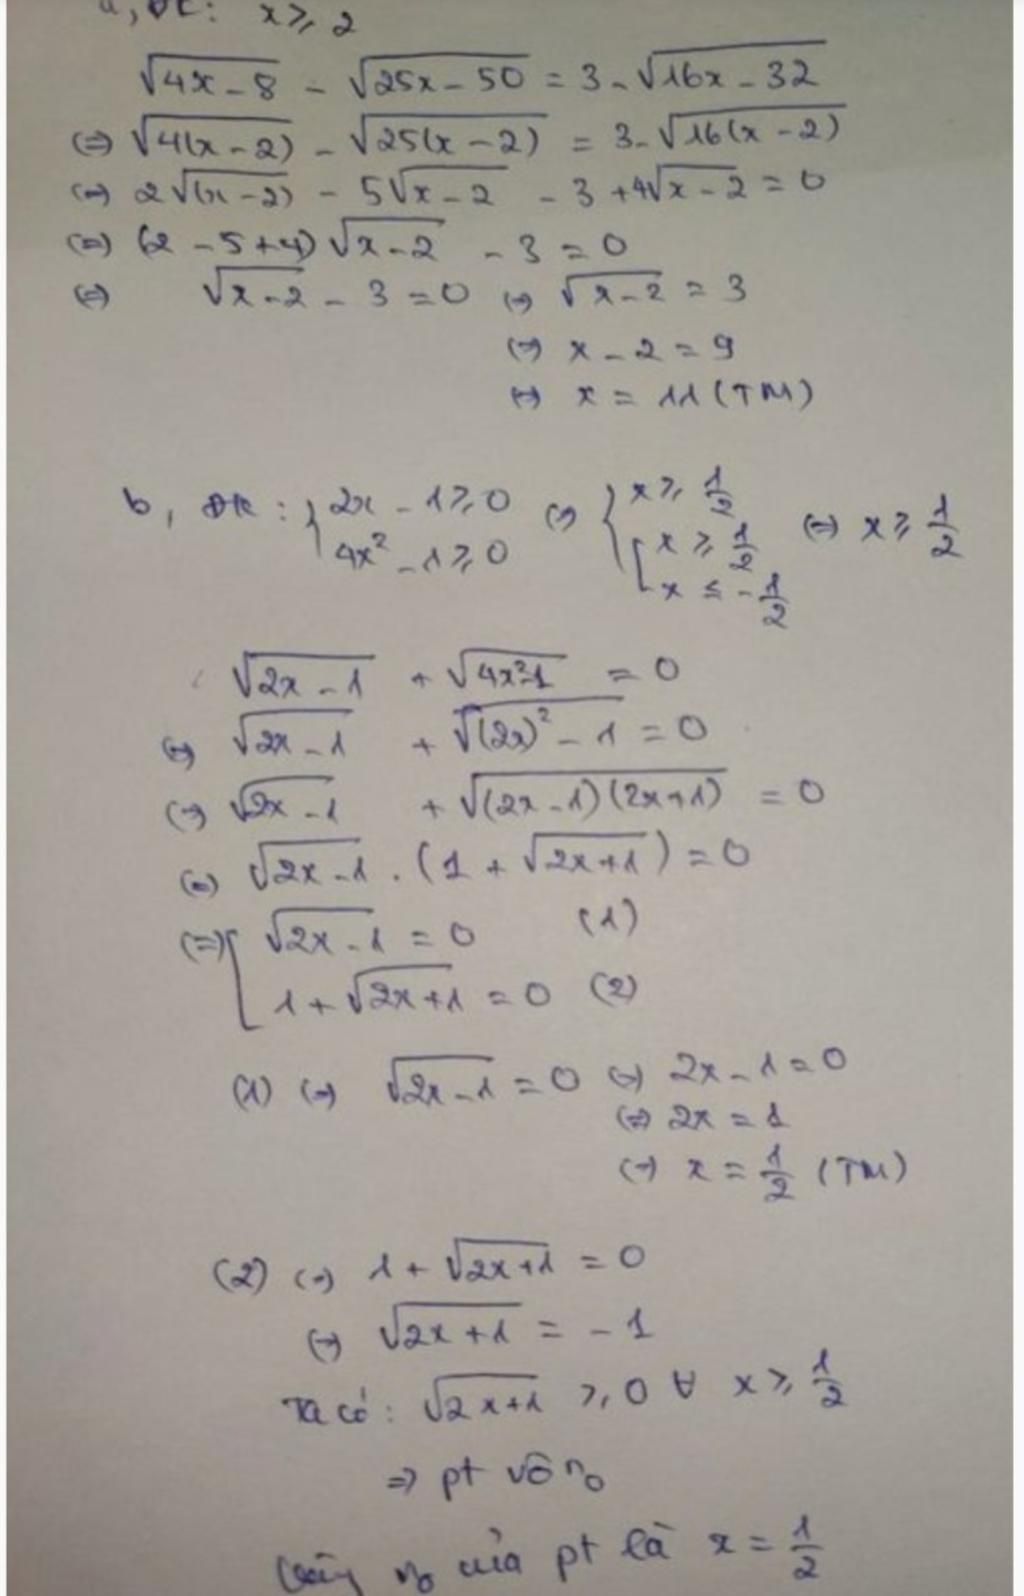 a, ĐK: x ⩾ 2
√(4x - 8) - √(25x - 50) = 3 - √(16x - 32)
(=) √(4(x - 2)) - √(25(x - 2)) = 3 - √(16(x - 2))
(=) 2√(x - 2) - 5√(x - 2) - 3 + 4√(x - 2) = 0
(=) (2 - 5 + 4)√(x - 2) - 3 = 0
(=) √(x - 2) - 3 = 0 (=) √(x - 2) = 3
(=) x - 2 = 9
(=) x = 11 (TM)
b, ĐK: { 2x - 1 ⩾ 0 ; 4x² - 1 ⩾ 0 (=) { x ⩾ 1/2 ; [ x ⩾ 1/2 ; x ≤ -1/2 (=) x ⩾ 1/2
√(2x - 1) + √(4x² - 1) = 0
(=) √(2x - 1) + √((2x)² - 1) = 0
(=) √(2x - 1) + √((2x - 1)(2x + 1)) = 0
(=) √(2x - 1) . (1 + √(2x + 1)) = 0
(=) [ √(2x - 1) = 0 (1)
1 + √(2x + 1) = 0 (2)
(1) (=) √(2x - 1) = 0 (=) 2x - 1 = 0
(=) 2x = 1
(=) x = 1/2 (TM)
(2) (=) 1 + √(2x + 1) = 0
(=) √(2x + 1) = -1
Ta có: √(2x + 1) ⩾ 0 ∀ x ⩾ 1/2
=> pt vô no
Vậy no của pt là x = 1/2